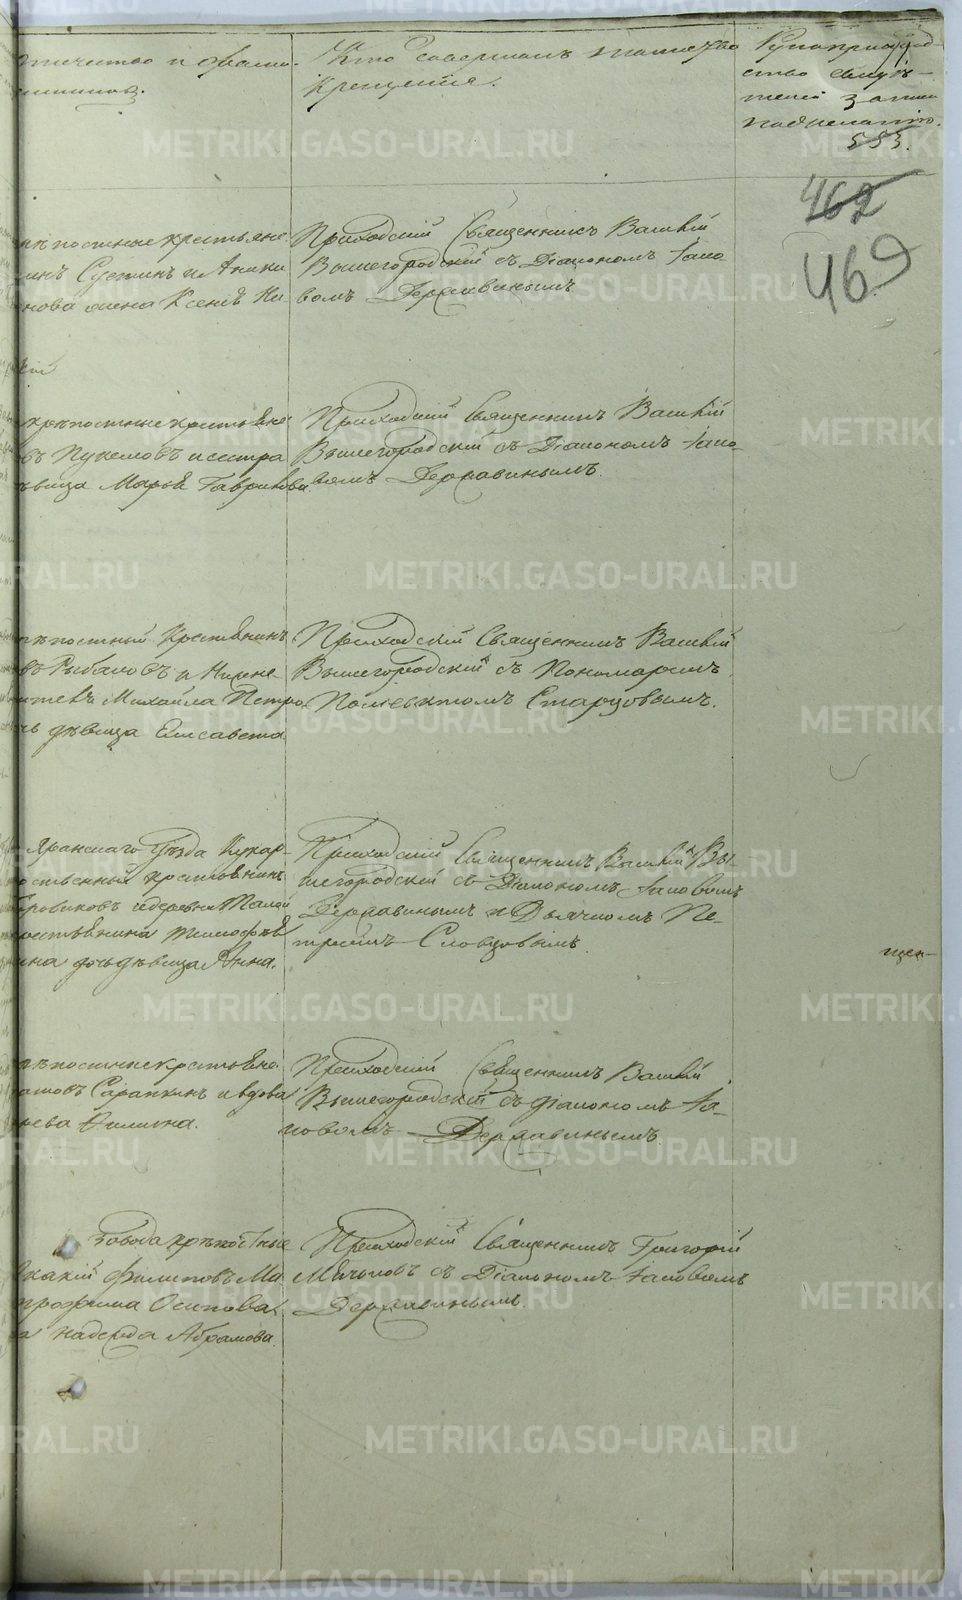 отчество и фами-
Кто совершалъ таинство
крещенія.
Рукоприклад-
ство свидѣ-
телей записи
по желанію.
553.
462
469
крѣпостные крестьяне
Сустинъ и Аники
нова жена Ксенія Ни
Приходскій Священникъ Василій
Вышегородскій съ Діакономъ Іако
вомъ Державинымъ
крѣпостные крестьяне
въ Пукемовъ и сестра
дѣвица Марья Гаврилова
Приходскій Священникъ Василій
Вышегородскій съ Діакономъ Іако-
вомъ Державинымъ.
крѣпостный Крестьянинъ
въ Рыбаловъ и Нижне-
Михайла Петро
дѣвица Елисавета
Приходскій Священникъ Василій
Вышегородскій съ Пономаремъ
Полиевктомъ Старцовымъ.
Яранскаго Уѣзда Кукар
крестьянинъ
ровиковъ и деревни Малой
крестьянина Тимофѣя
ина дочь дѣвица Анна.
Приходскій Священникъ Василій Вы-
шегородскій съ Діакономъ Іаковомъ
Державинымъ и Дьячкомъ Пе-
тромъ Словцовымъ.
щен-
крѣпостные крестьяне
Сарапкинъ и вдова
Филина.
Приходскій Священникъ Василій
Вышегородскій съ діакономъ Іа-
ковомъ Державинымъ.
завода крѣпостные
какій Филиповъ Ма
Осипова,
Надежда Абрамова.
Приходскій Священникъ Григорій
Мѣльковъ съ Діакономъ Іаковомъ
Державинымъ.
METRIKI.GASO-URAL.RU